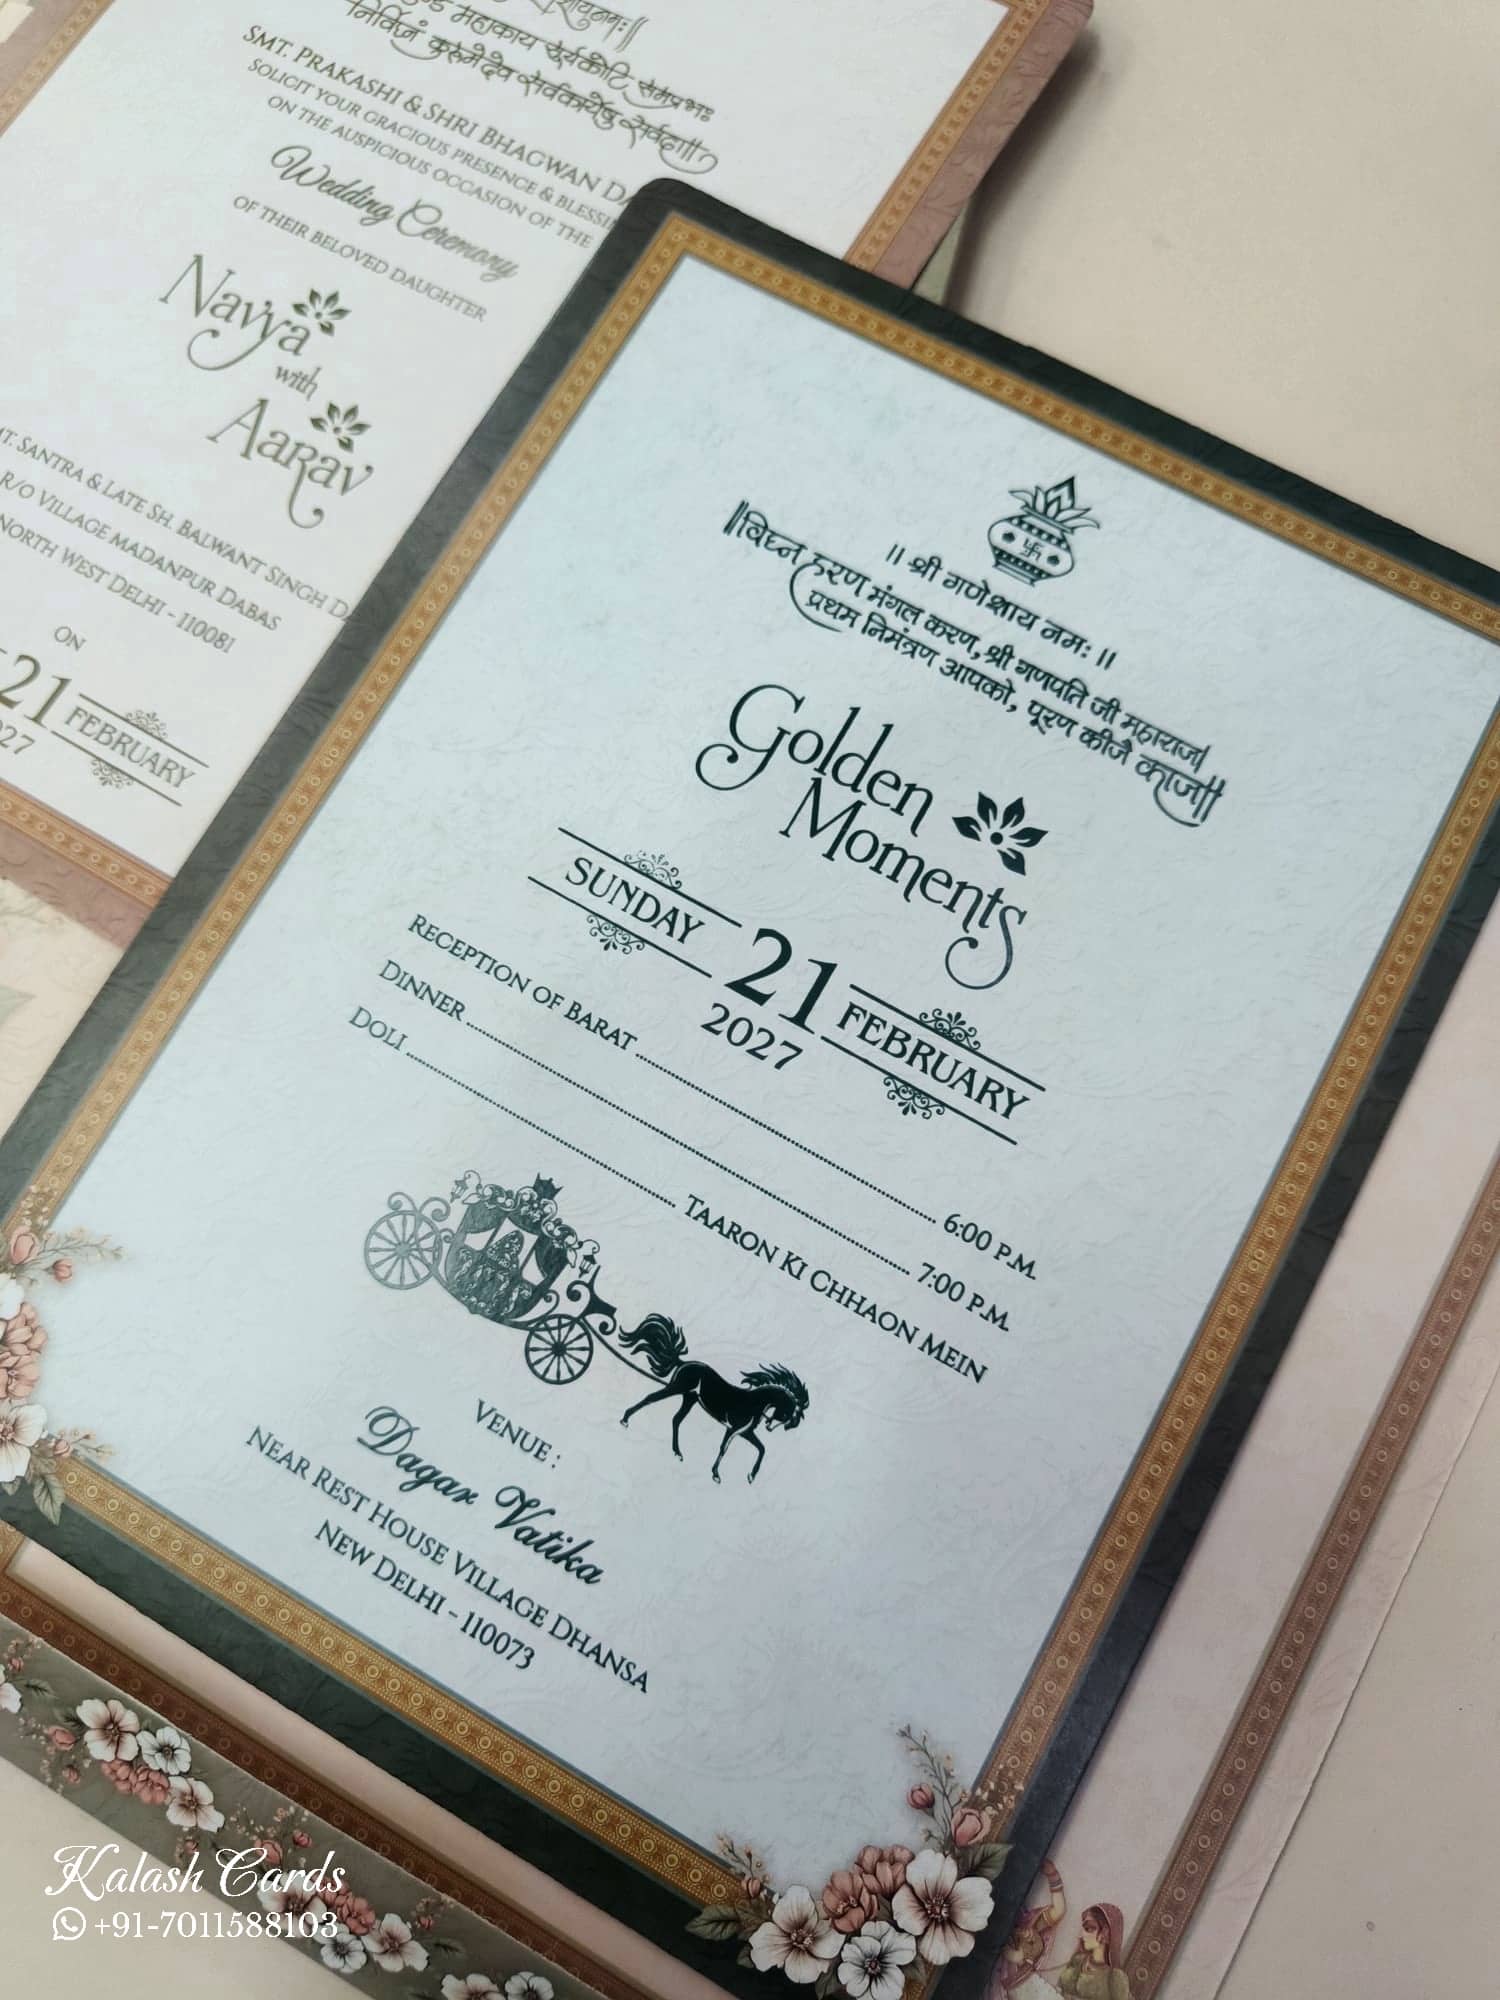 निर्विघ्नं कुरुमेदेव सर्वकार्येषु सर्वदा॥
Smt. Prakashi & Shri Bhagwan
solicit your gracious presence &
on the auspicious occasion of the
Wedding Ceremony
of their beloved daughter
Navya
with
Aarav
Santra & Late Sh. Balwant Singh
R/o Village Madanpur Dabas
North West Delhi - 110081
on
21 FEBRUARY
॥ श्री गणेशाय नमः ॥
॥विघ्न हरण मंगल करण, श्री गणपति जी महाराज।
प्रथम निमंत्रण आपको, पूरण कीजै काज॥
Golden
Moments
SUNDAY 21 FEBRUARY
2027
Reception of Barat ........ 6:00 p.m.
Dinner ........ 7:00 p.m.
Doli ........ Taaron Ki Chhaon Mein
Venue :
Dagar Vatika
Near Rest House Village Dhansa
New Delhi - 110073
Kalash Cards
+91-7011588103